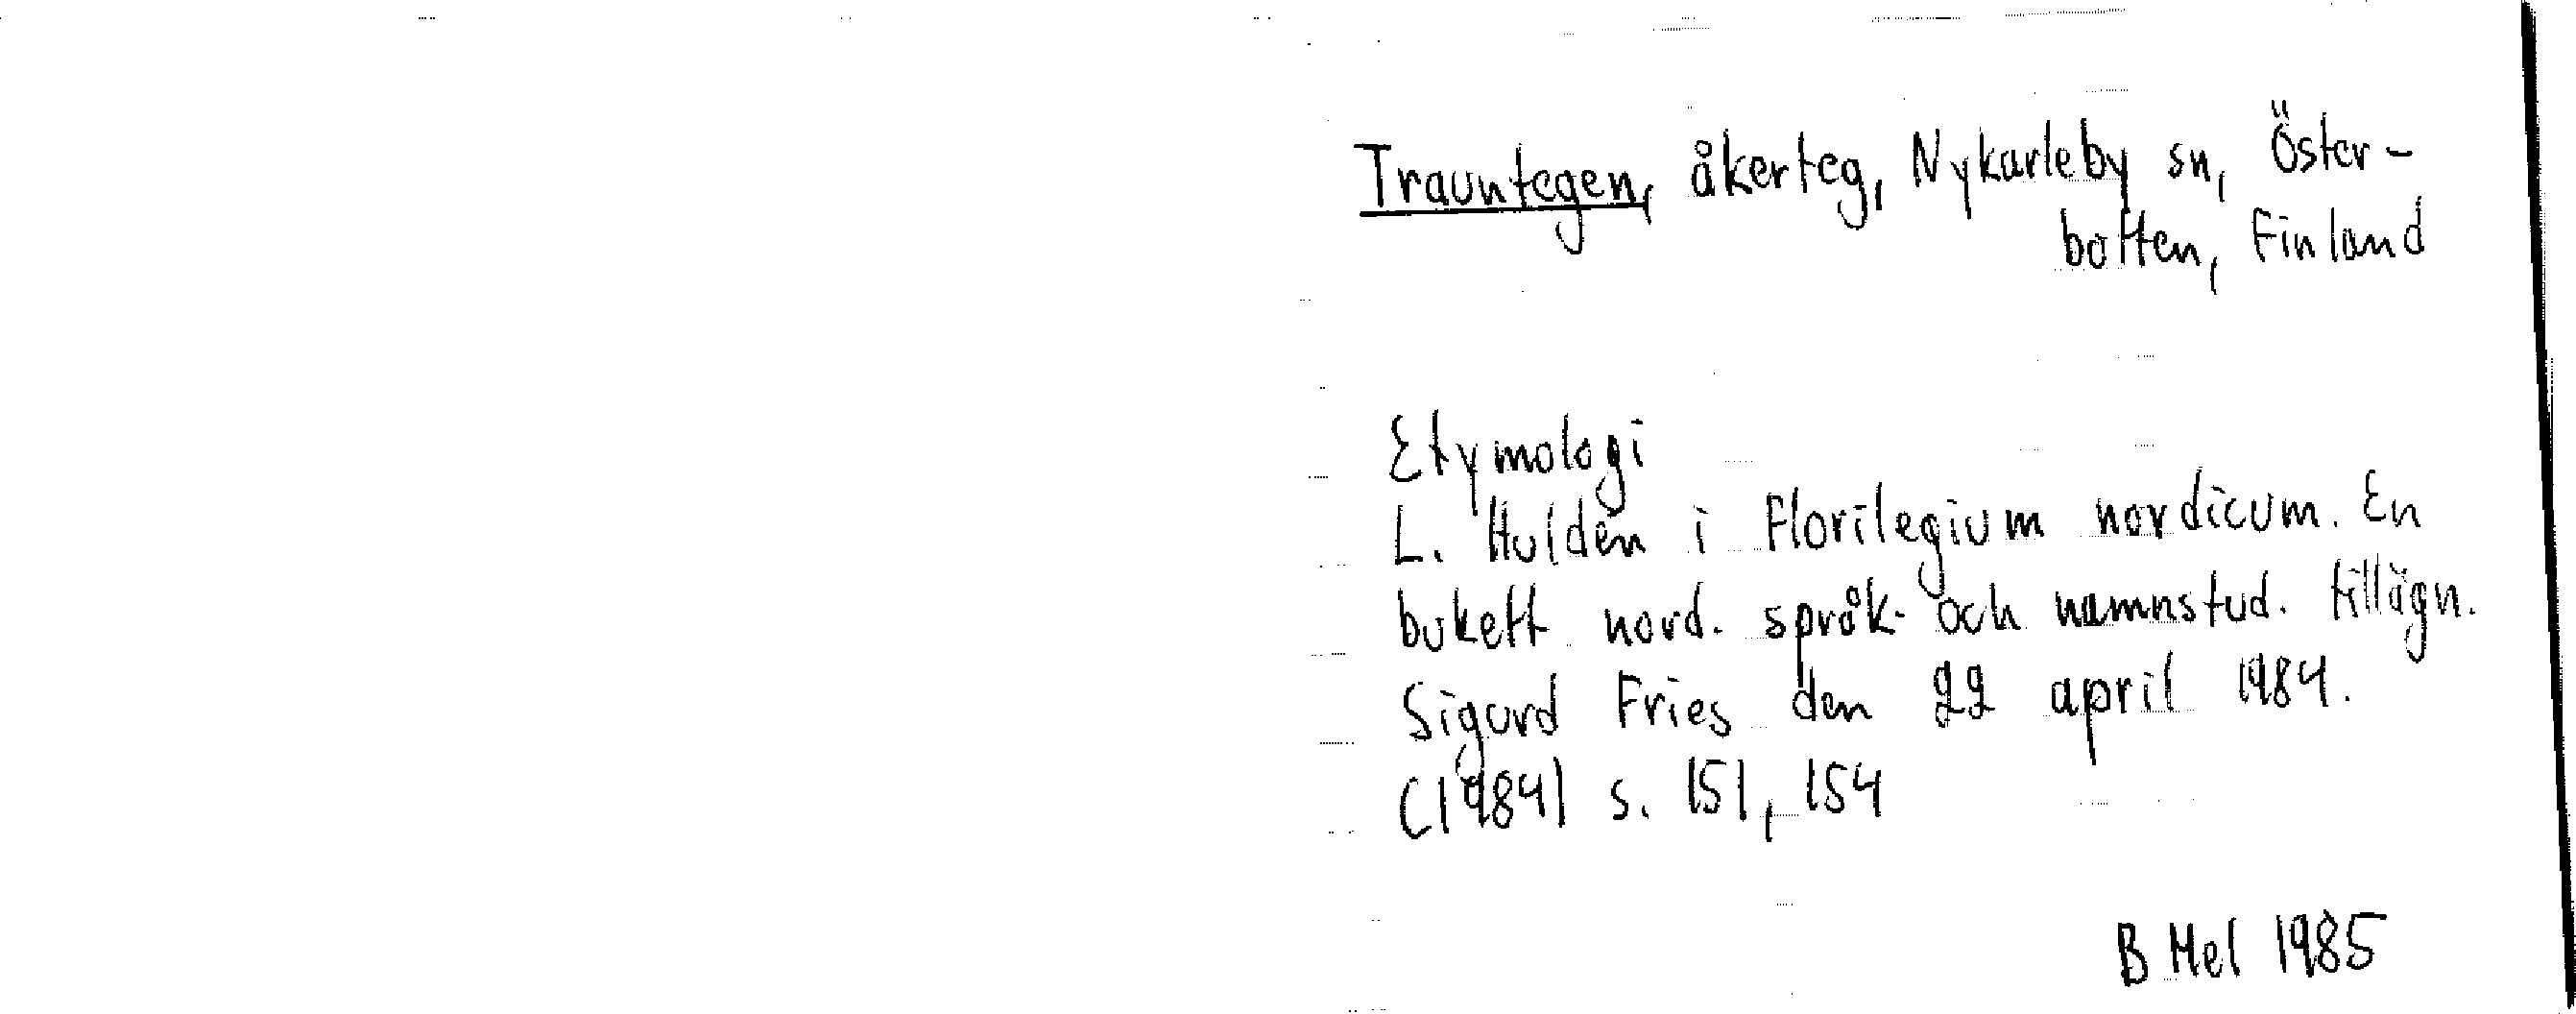 Trauntegen, åkerteg, Nykarleby sn, Öster-
botten, Finland
Etymologi
L. Huldén i Florilegium nordicum. En
bukett nord. språk- och namnstud. tillägn.
Sigurd Fries den 22 april 1984.
(1984) s. 151, 154
B Mel 1985